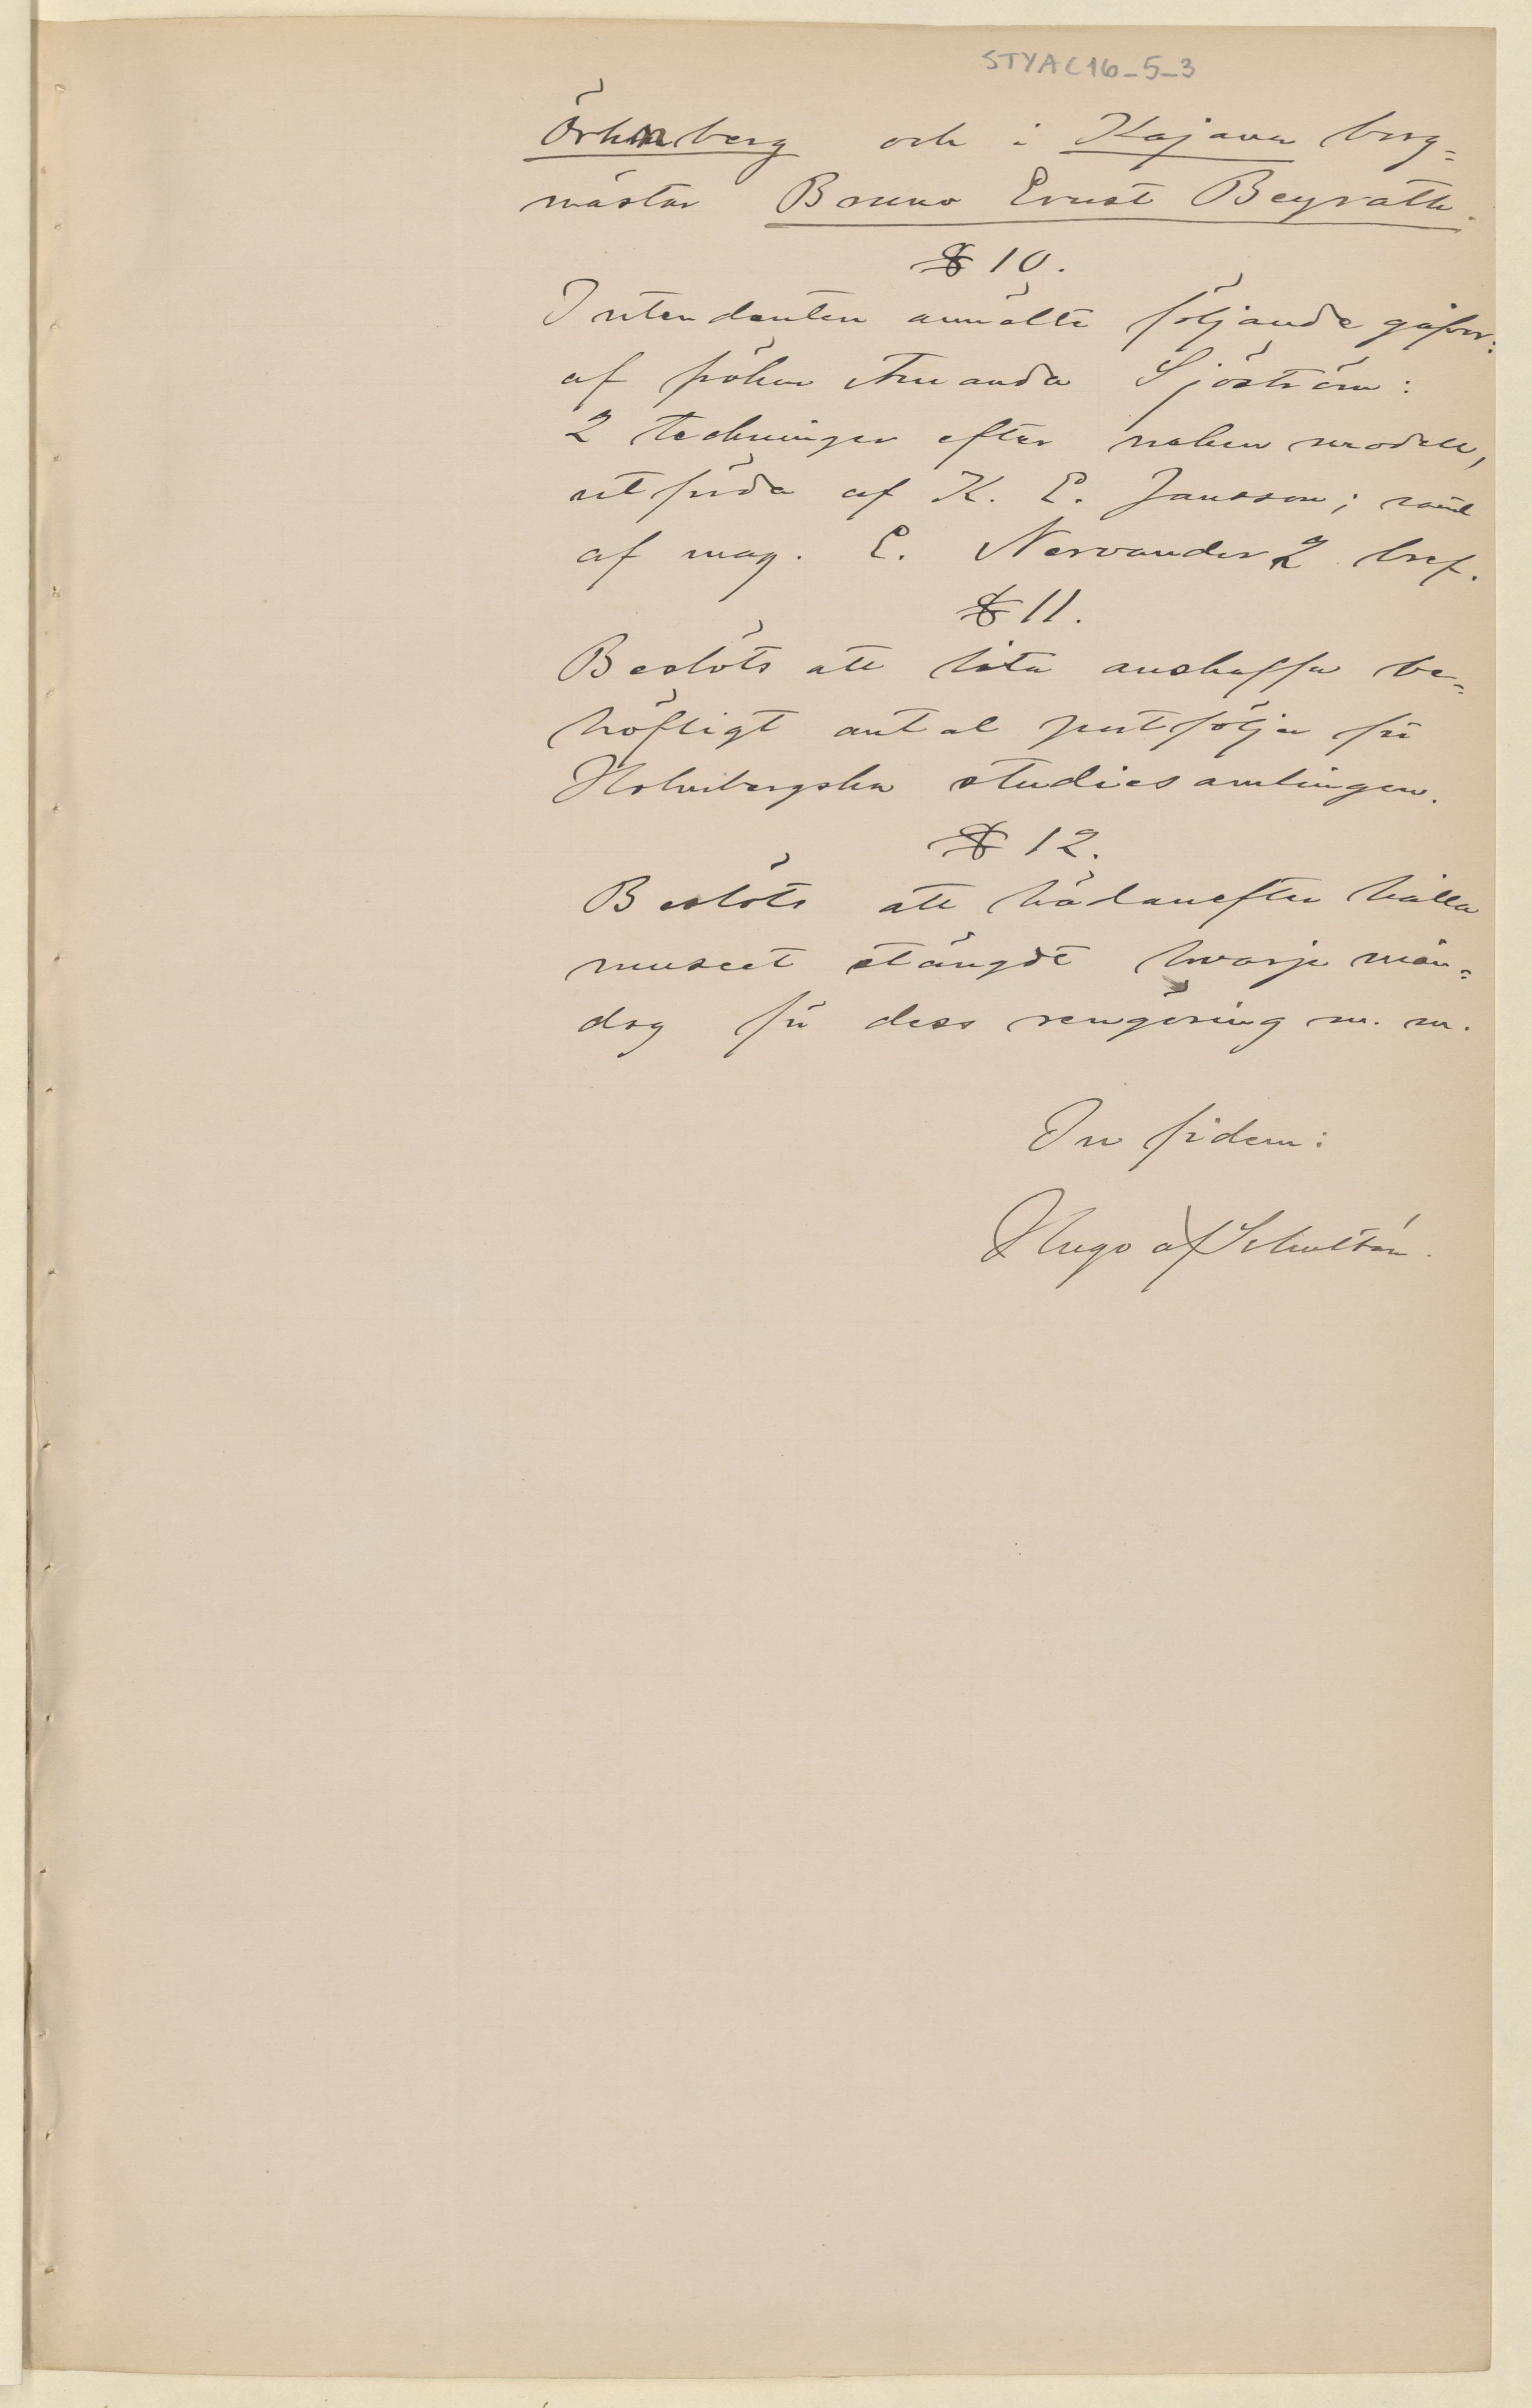 STYAC16-5-3
Örhnberg och i Kajana borg=
mästar Bruno Ernst Beyrath.
§ 10.
Intendenten anmälte följande gåfvor:
af fröken Amanda Sjöström:
2 teckningar efter naken modell,
utförda af K. E. Jansson; samt
af mag. E. Nervander 2 bref.
§ 11.
Beslöts att låta anskaffa be=
höfligt antal portföljer för
Holmbergska studiesamlingen.
§ 12.
Beslöts att hädanefter hålla
museet stängdt hvarje mån=
dag för dess rengöring m. m.
In fidem:
Hugo af Schultén.